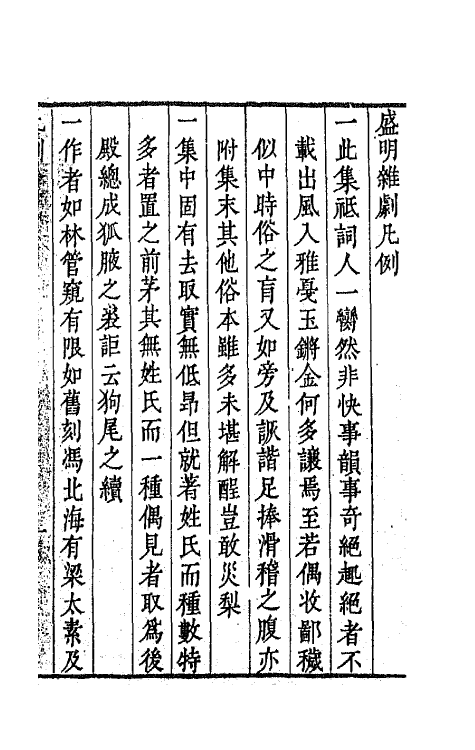 盛明雜劇凡例
一此集祗詞人一臠然非快事韻事奇絕趣絕者不
載出風入雅戞玉鏘金何多讓焉至若偶收鄙穢
似中時俗之肓又如旁及詼諧足捧滑稽之腹亦
附集末其他俗本雖多未堪解酲豈敢災梨
一集中固有去取實無低昻但就著姓氏而種數特
多者置之前茅其無姓氏而一種偶見者取爲後
殿總成狐腋之裘詎云狗尾之續
一作者如林管窺有限如舊刻馮北海有梁太素及